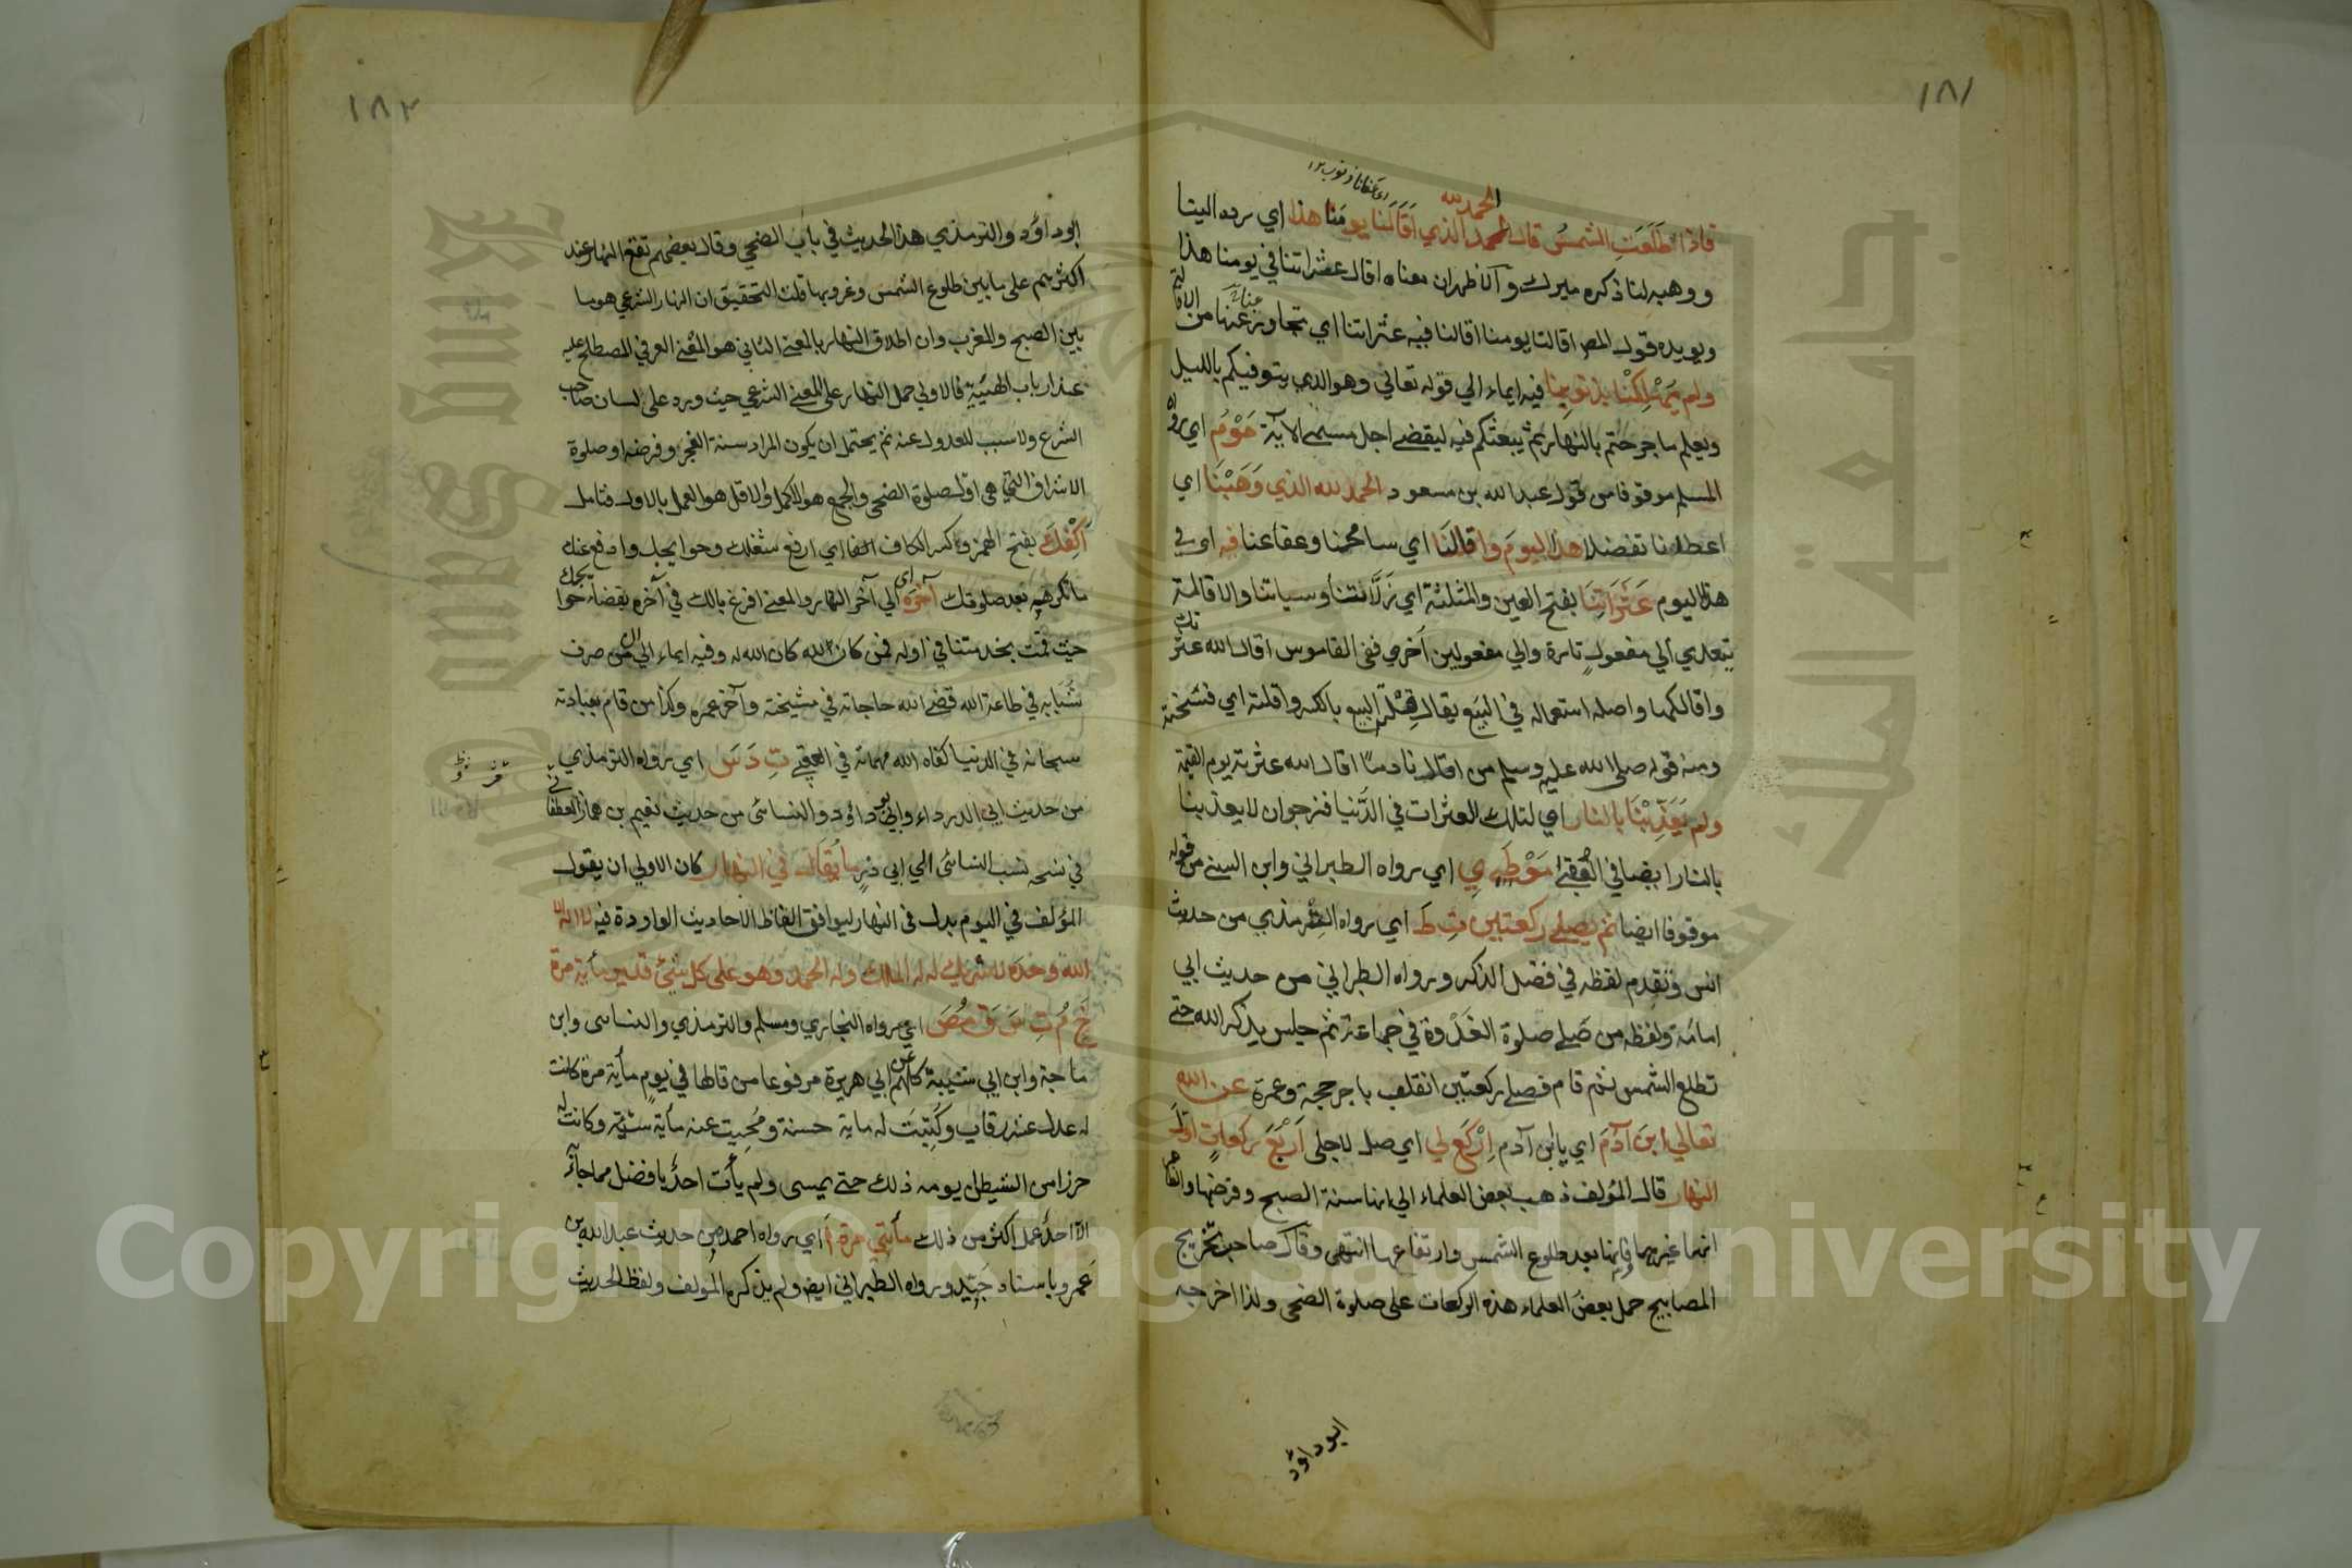 ١٨١
الحمد لله
فاذا طلعت الشمس قال الحمد الذي اقالنا يومنا هذا اي رده الينا
ووهبه لنا ذكره ميرك و الاظهران معناه اقال عثراتنا في يومنا هذا
ويويده قول المص اقالنا يومنا اقالنا فيه عثراتنا اي تجاوز عنها من الاقالة
ولم يهلكنا بذنوبنا فيه ايماء الي قوله تعالي وهو الذي يتوفيكم بالليل
ويعلم ما جرحتم بالنهار ثم يبعثكم فيه ليقضي اجل مسمي الآية مَوْمُ اي رواه
المسلم موقوفا من قول عبد الله بن مسعود الحمد لله الذي وَهَبْنَا اي
اعطانا تفضلا هذا اليوم واقالَنَا اي سامحنا وعفا عنا فيه اي في
هذا اليوم عَثَرَاتِنَا بفتح العين والمثلثة اي زَلَّاتنا وسياتنا والاقالة
يتعدي الي مفعول تارة والي مفعولين اخري ففي القاموس اقال الله عثرتك
واقالكها واصله استعماله في البيع يقال قِلْتُه البيع بالكسر واقلته اي فسخته
ومنه قوله صلي الله عليه وسلم من اقال نادما اقال الله عثرته يوم القيمة
ولم يُعَذِّبْنَا بالنار اي لتلك العثرات في الدُّنيا فنرجوان لا يعذبنا
بالنار ايضا في العُقبي مَوْ طَ ي اي رواه الطبراني وابن السني من قوله
موقوفا ايضا ثم يصلي ركعتين تِ طَ اي رواه الترمذي من حديث
انس وتقدم لفظه في فضل الذكر ورواه الطبراني من حديث ابي
امامة ولفظه من صَلي صلوة الغَدْوة في جماعة ثم جلس يذكر الله حتي
تطلع الشمس ثم قام فصلي ركعتين انقلب باجر حجة وعمرة عن الله
تعالي ابنَ آدَمَ اي يابن آدم اِرْكَعْ لي اي صل لاجلي اَرْبَعَ ركعاتٍ اوّلَ
النهار قال المؤلف ذهب بعض العلماء الي انها سنة الصبح وفرضها والظاهر
انها غيرهما وانها بعد طلوع الشمس وارتفاعها انتهي وقال صاحب تخريج
المصابيح حمل بعضُ العلماء هذه الركعات علي صلوة الضحي ولذا اخرجه
ابوداؤد
١٨٢
ابوداؤد والترمذي هذا الحديث في باب الضحي وقال بعضهم تقع النهار عند
اكثرهم علي ما بين طلوع الشمس وغروبها قلت التحقيق ان النهار الشرعي هو ما
بين الصبح والمغرب وان اطلاق النهار بالمعني الثاني هو المعني العرفي المصطلح عليه
عند ارباب الهيئية فالاولي حمل النهار علي المعني الشرعي حيث ورد علي لسان صاحب
الشرع ولا سبب للعدول عنه ثم يحتمل ان يكون المراد سنة الفجر وفرضه او صلوة
الاشراق التي هي اول صلوة الضحي والجمع هو الاكمل والاقل هو العمل بالاول فتامل
اَكْفِكَ بفتح الهمزة وكسر الكاف الفا اي ارفع شغلك وحوايجك وادفع عنك
ما تكرهه بعد صلوتك آخرَهُ اي الي آخر النهار والمعني افرغ بالك في آخره بقضاء حوايجك
حيث قمت بخدمتنا في اوله فمن كان لله كان الله له وفيه ايماء الي ان من صرف
شَبَابه في طاعة الله قضي الله حاجاته في مشيخته وآخر عمره وكذا من قام بعبادته
سبحانه في الدنيا كفاه الله مهماته في العقبي تِ دَ سَ اي رواه الترمذي
من حديث ابي الدرداء وابي ذر وابو داؤد والنسائي من حديث نعيم بن همار الغطفاني
في نسخه نسب النسائي الي ابي ذرٍ ما يُقَالُ في النهار كان الاولي ان يقول
المؤلف في اليوم بدل في النهار ليوافق الفاظ الاحاديث الواردة فيه لا اله الا
الله وحده لا شريك له له الملك وله الحمد وهو علي كل شيئ قدير مأية مرة
خَ مُ تِ سَ قَ مُصَ اي رواه البخاري ومسلم والترمذي والنسائي وابن
ماجة وابن ابي شيبة كلهم عن ابي هريرة مرفوعا من قالها في يومٍ مأية مرة كانت
له عدل عشر رقاب وكُتِبَت له ماية حسنة ومُحِيت عنه مأية سَيِّئةٍ وكانت له
حرزا من الشيطان يومه ذلك حتي يمسي ولم يأت احدٌ بافضل مما جاءَ
الّا احدٌ عمل اكثر من ذلك مأتي مرة أ اي رواه احمد من حديث عبد الله بن
عَمرو باسناد جَيّد ورواه الطبراني ايض ولم يذكره المؤلف ولفظ الحديث
Copyright © King Saud University
King Saud University
جامعة الملك سعود